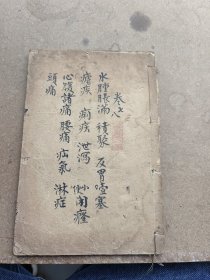 卷七八
水腫脹滿 積聚 反胃噎塞
瘧疾 痢疾 泄瀉 小便閉癃
心腹諸痛 腰痛 疝氣 淋症
頭痛